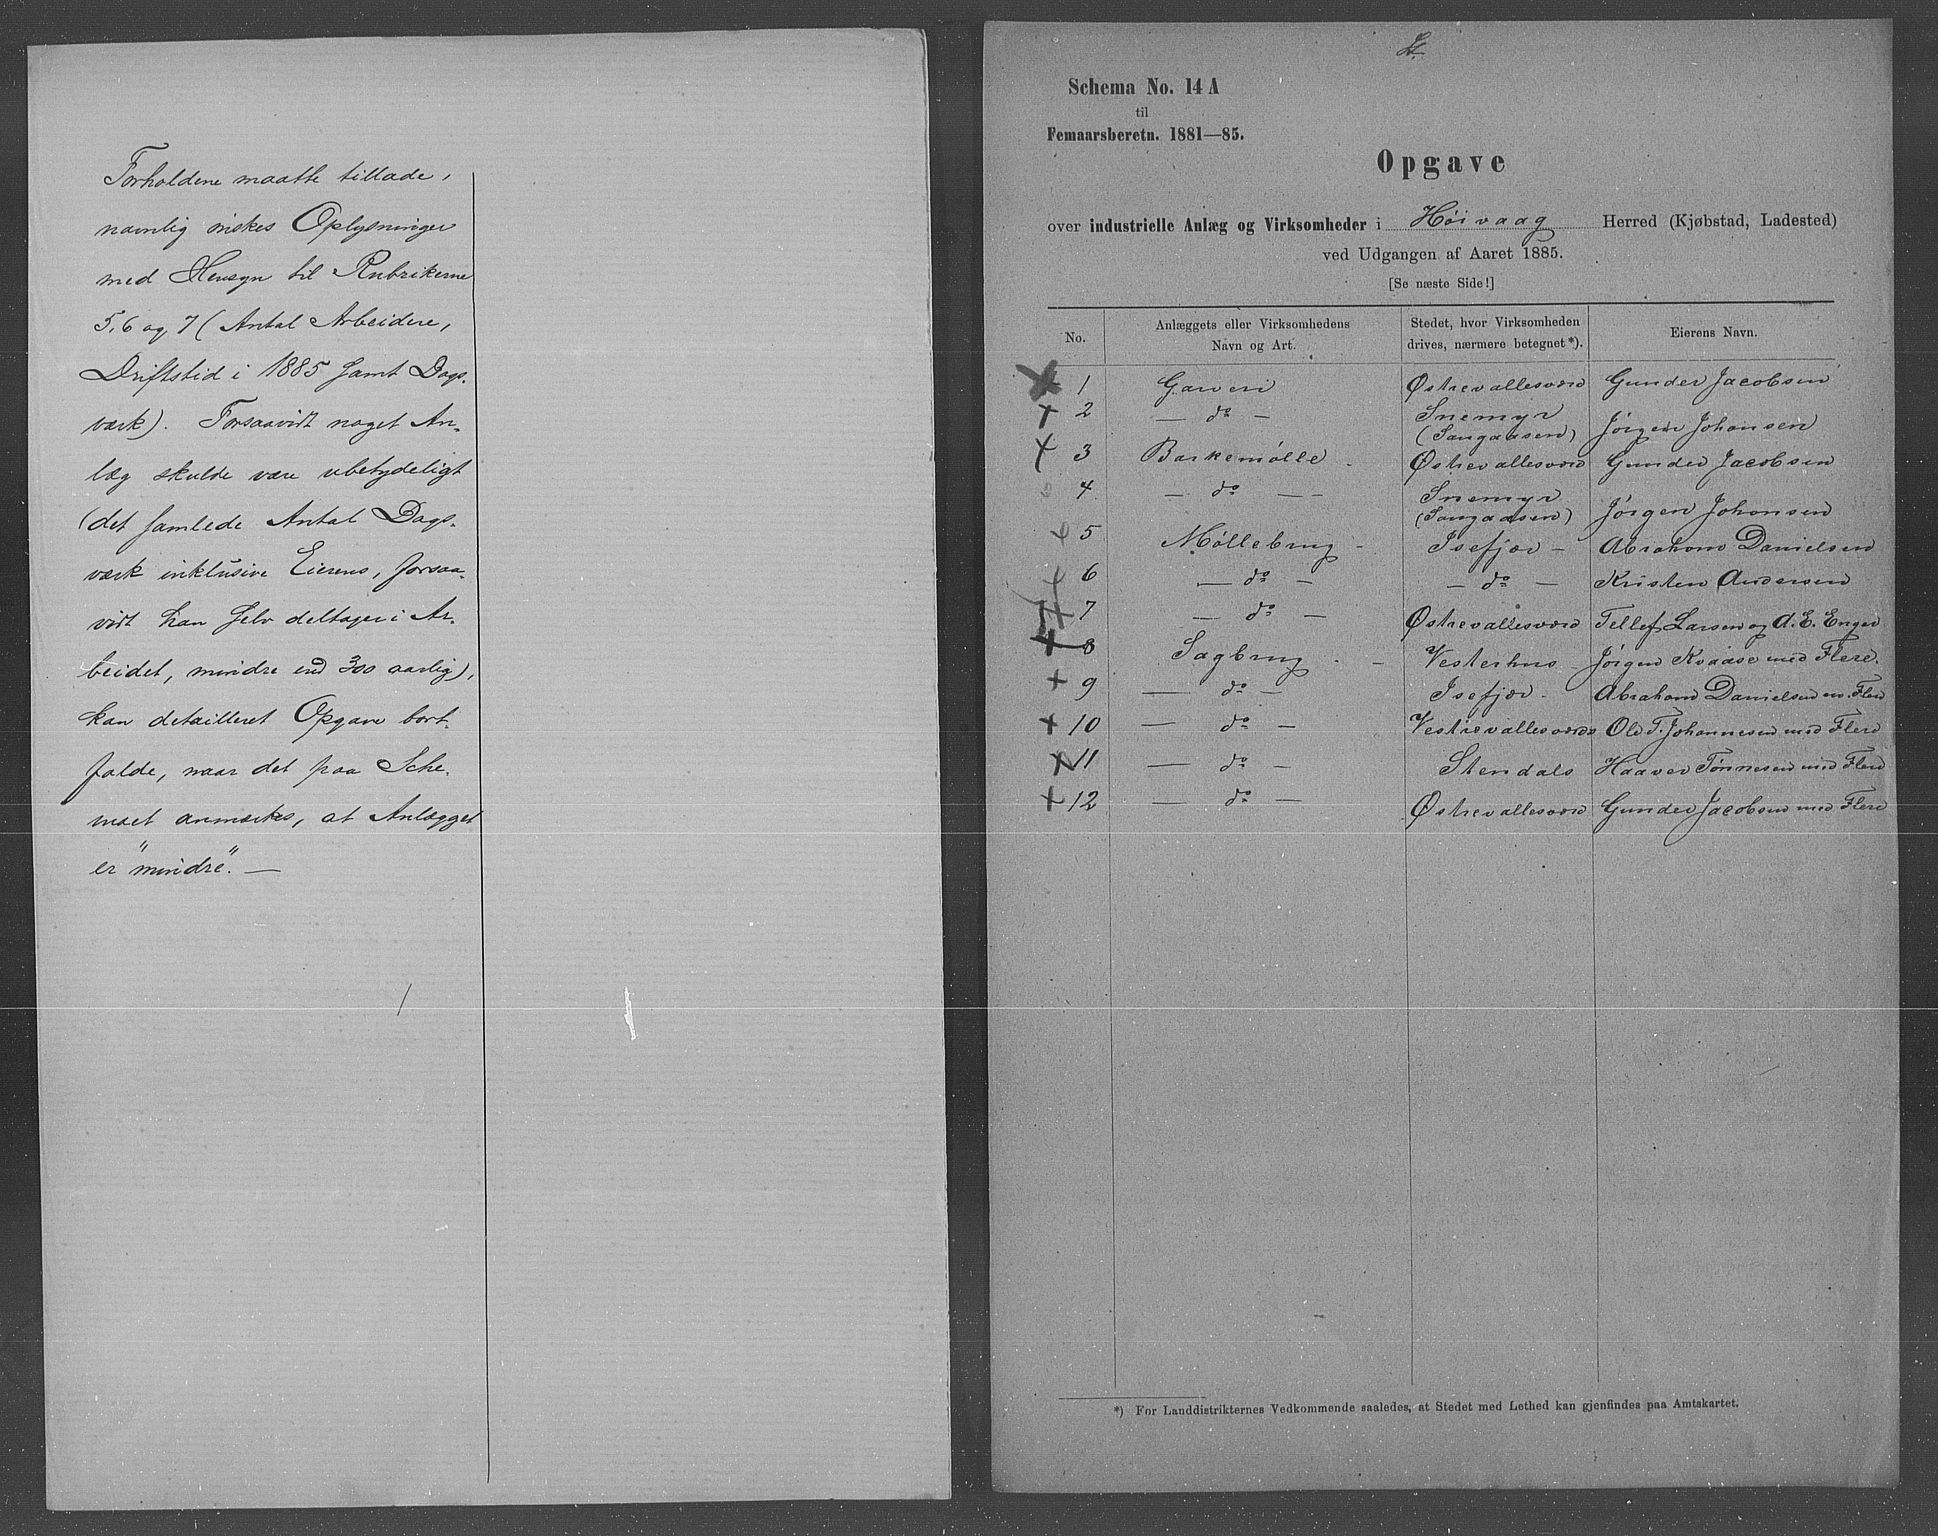 Forholdene maatte tillade,
navnlig ønskes Oplysninger
med Hensyn til Rubrikerne
5, 6 og 7 (Antal Arbeidere,
Driftstid i 1885 samt Dags-
værk). Forsaavidt noget An-
læg skulde være ubetydeligt
(det samlede Antal Dags-
værk inklusive Eierens, forsaa-
vidt han selv deltager i Ar-
beidet, mindre end 300 aarlig),
kan detailleret Opgave bort-
falde, naar det paa Sche-
maet anmærkes, at Anlægget
er "mindre". —
Schema No. 14 A
til
Femaarsberetn. 1881—85.
Opgave
over industrielle Anlæg og Virksomheder i Höivaag Herred (Kjøbstad, Ladested)
ved Udgangen af Aaret 1885.
[Se næste Side!]
No. Anlæggets eller Virksomhedens Navn og Art. Stedet, hvor Virksomheden drives, nærmere betegnet*). Eierens Navn.
1 Garveri Østrevallesværd Gunder Jacobsen
2 — do — Snemyr (Sangaasen) Jørgen Johansen
3 Barkemølle - Østrevallesværd Gunder Jacobsen
4 — do — — Snemyr (Sangaasen) Jørgen Johansen
5 Møllebrug - Isefjær — Abraham Danielsen
6 — do — — do — Kristen Andersen
7 — do — Østrevallesværd Tellef Larsen og A. E. Enger
8 Sagbrug - — Vesterhus - Jørgen Kvaase med Flere.
9 — do — Isefjær - Abraham Danielsen m. Flere
10 — do — Vestrevallesværd Ole T. Johannesen med Flere
11 — do — Stendals Haaver Tønnesen med Flere
12 — do — Østrevallesværd Gunder Jacobsen med Flere
*) For Landdistrikternes Vedkommende saaledes, at Stedet med Lethed kan gjenfindes paa Amtskartet.